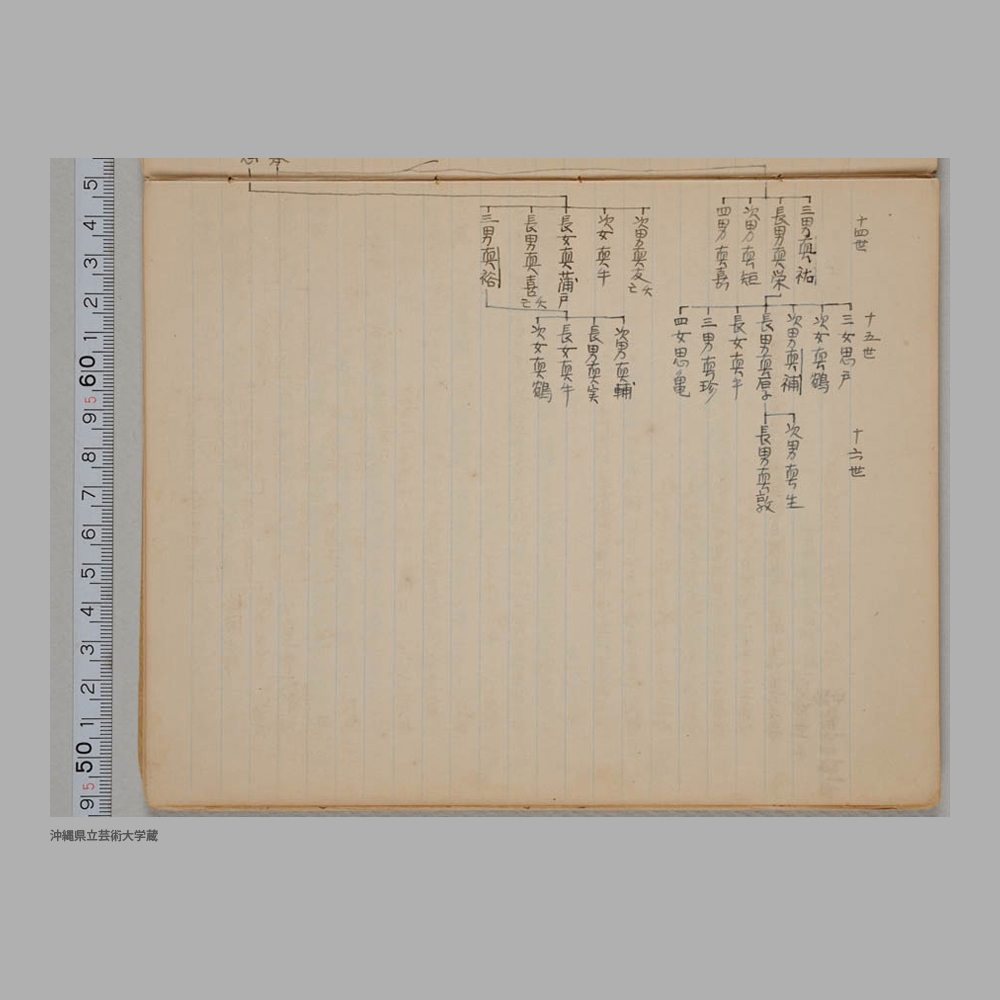 十四世
三男真祐
長男真栄
次男真矩
四男真喜
次男真友
次女真牛
長女真蒲戸
長男真喜
三男真裕
十五世
三女思戸
次女真鶴
次男真補
長男真厚
長女真牛
三男真珍
四女思亀
次男真輔
長男真実
長女真牛
次女真鶴
十六世
次男真生
長男真敦
5 4 3 2 1 60 9 8 7 6 5 4 3 2 1 50 9
5
5
沖縄県立芸術大学蔵